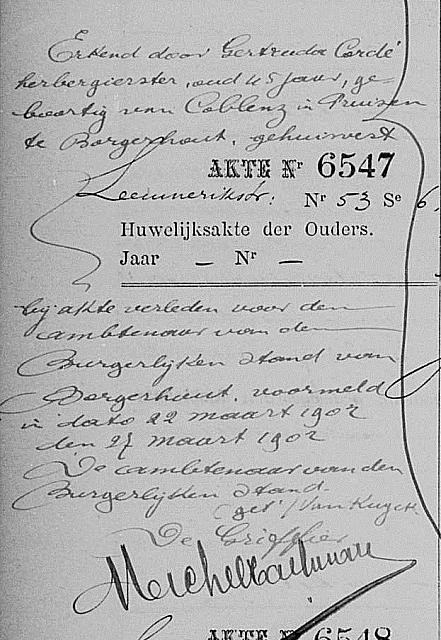 Erkend door Gertruda Cordé
herbergierster, oud 45 jaar, ge-
boortig van Coblenz in Pruisen
te Borgerhout, gehuisvest
AKTE Nr 6547
Nr 53 Se 6
Huwelijksakte der Ouders.
Jaar — Nr —
bij akte verleden voor den
ambtenaar van den
Burgerlijken Stand van
Borgerhout, voormeld
in dato 22 maart 1902
den 27 maart 1902
De ambtenaar van den
Burgerlijken Stand.
(get)
De Griffier
AKTE Nr 6548